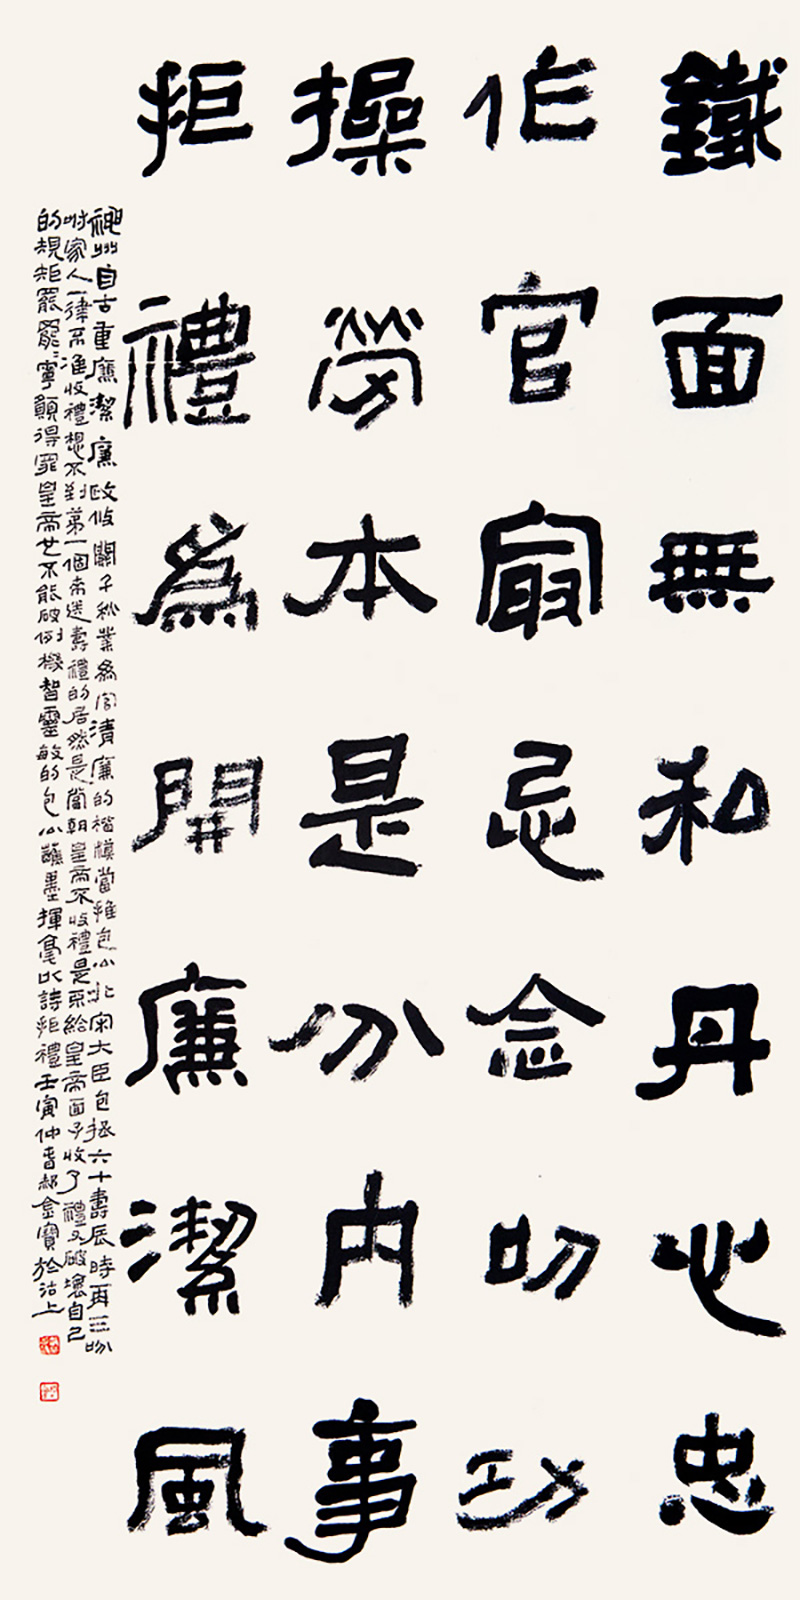 鐵面無私丹心忠
作官最忌念叨功
操勞本是分內事
拒禮為開廉潔風
神州自古重廉潔廉政攸關千秋業為官清廉的楷模當推包公北宋大臣包拯六十壽辰時再三吩
咐家人一律不准收禮想不到第一個來送壽禮的居然是當朝皇帝不收禮是不給皇帝面子收了禮又破壞自己
的規矩罷罷寧願得罪皇帝也不能破例機智靈敏的包公蘸墨揮毫以詩拒禮壬寅仲春郝金寶於沽上